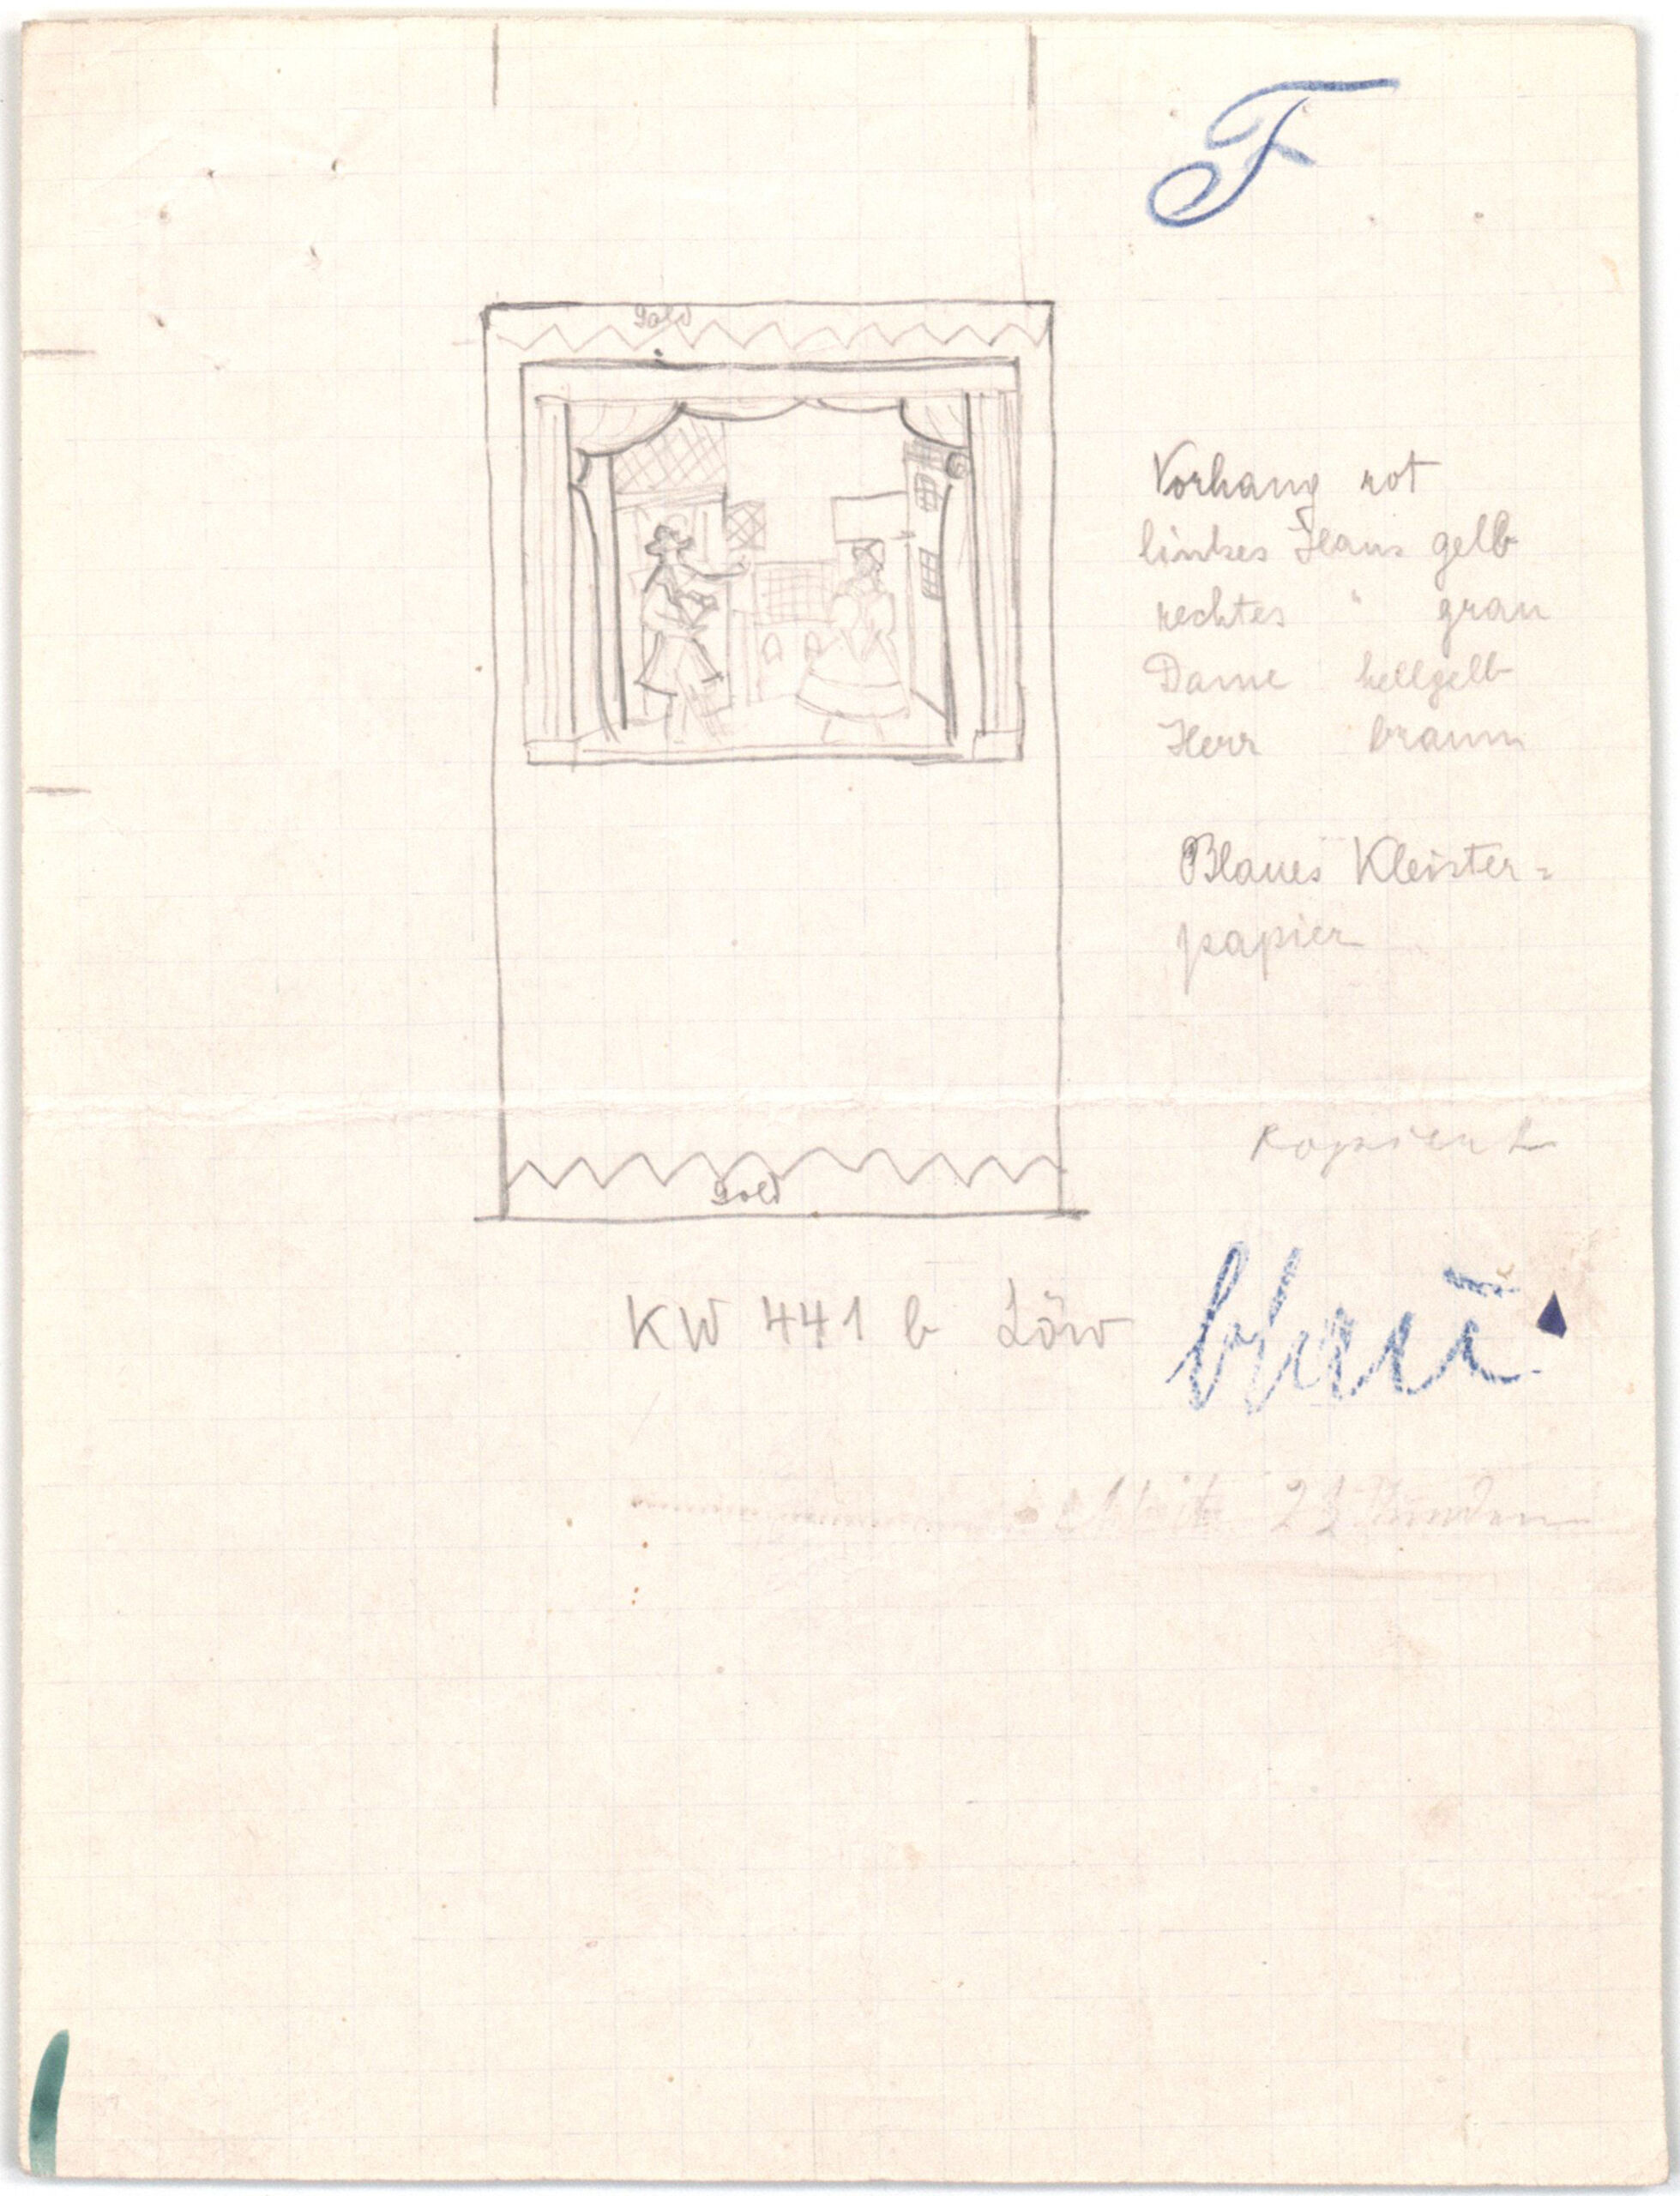 F
Gold
Vorhang rot
linkes Haus gelb
rechtes " grau
Dame hellgelb
Herr braun
Blaues Kleister=
papier
kopiert
Gold
KW 441 b Löw